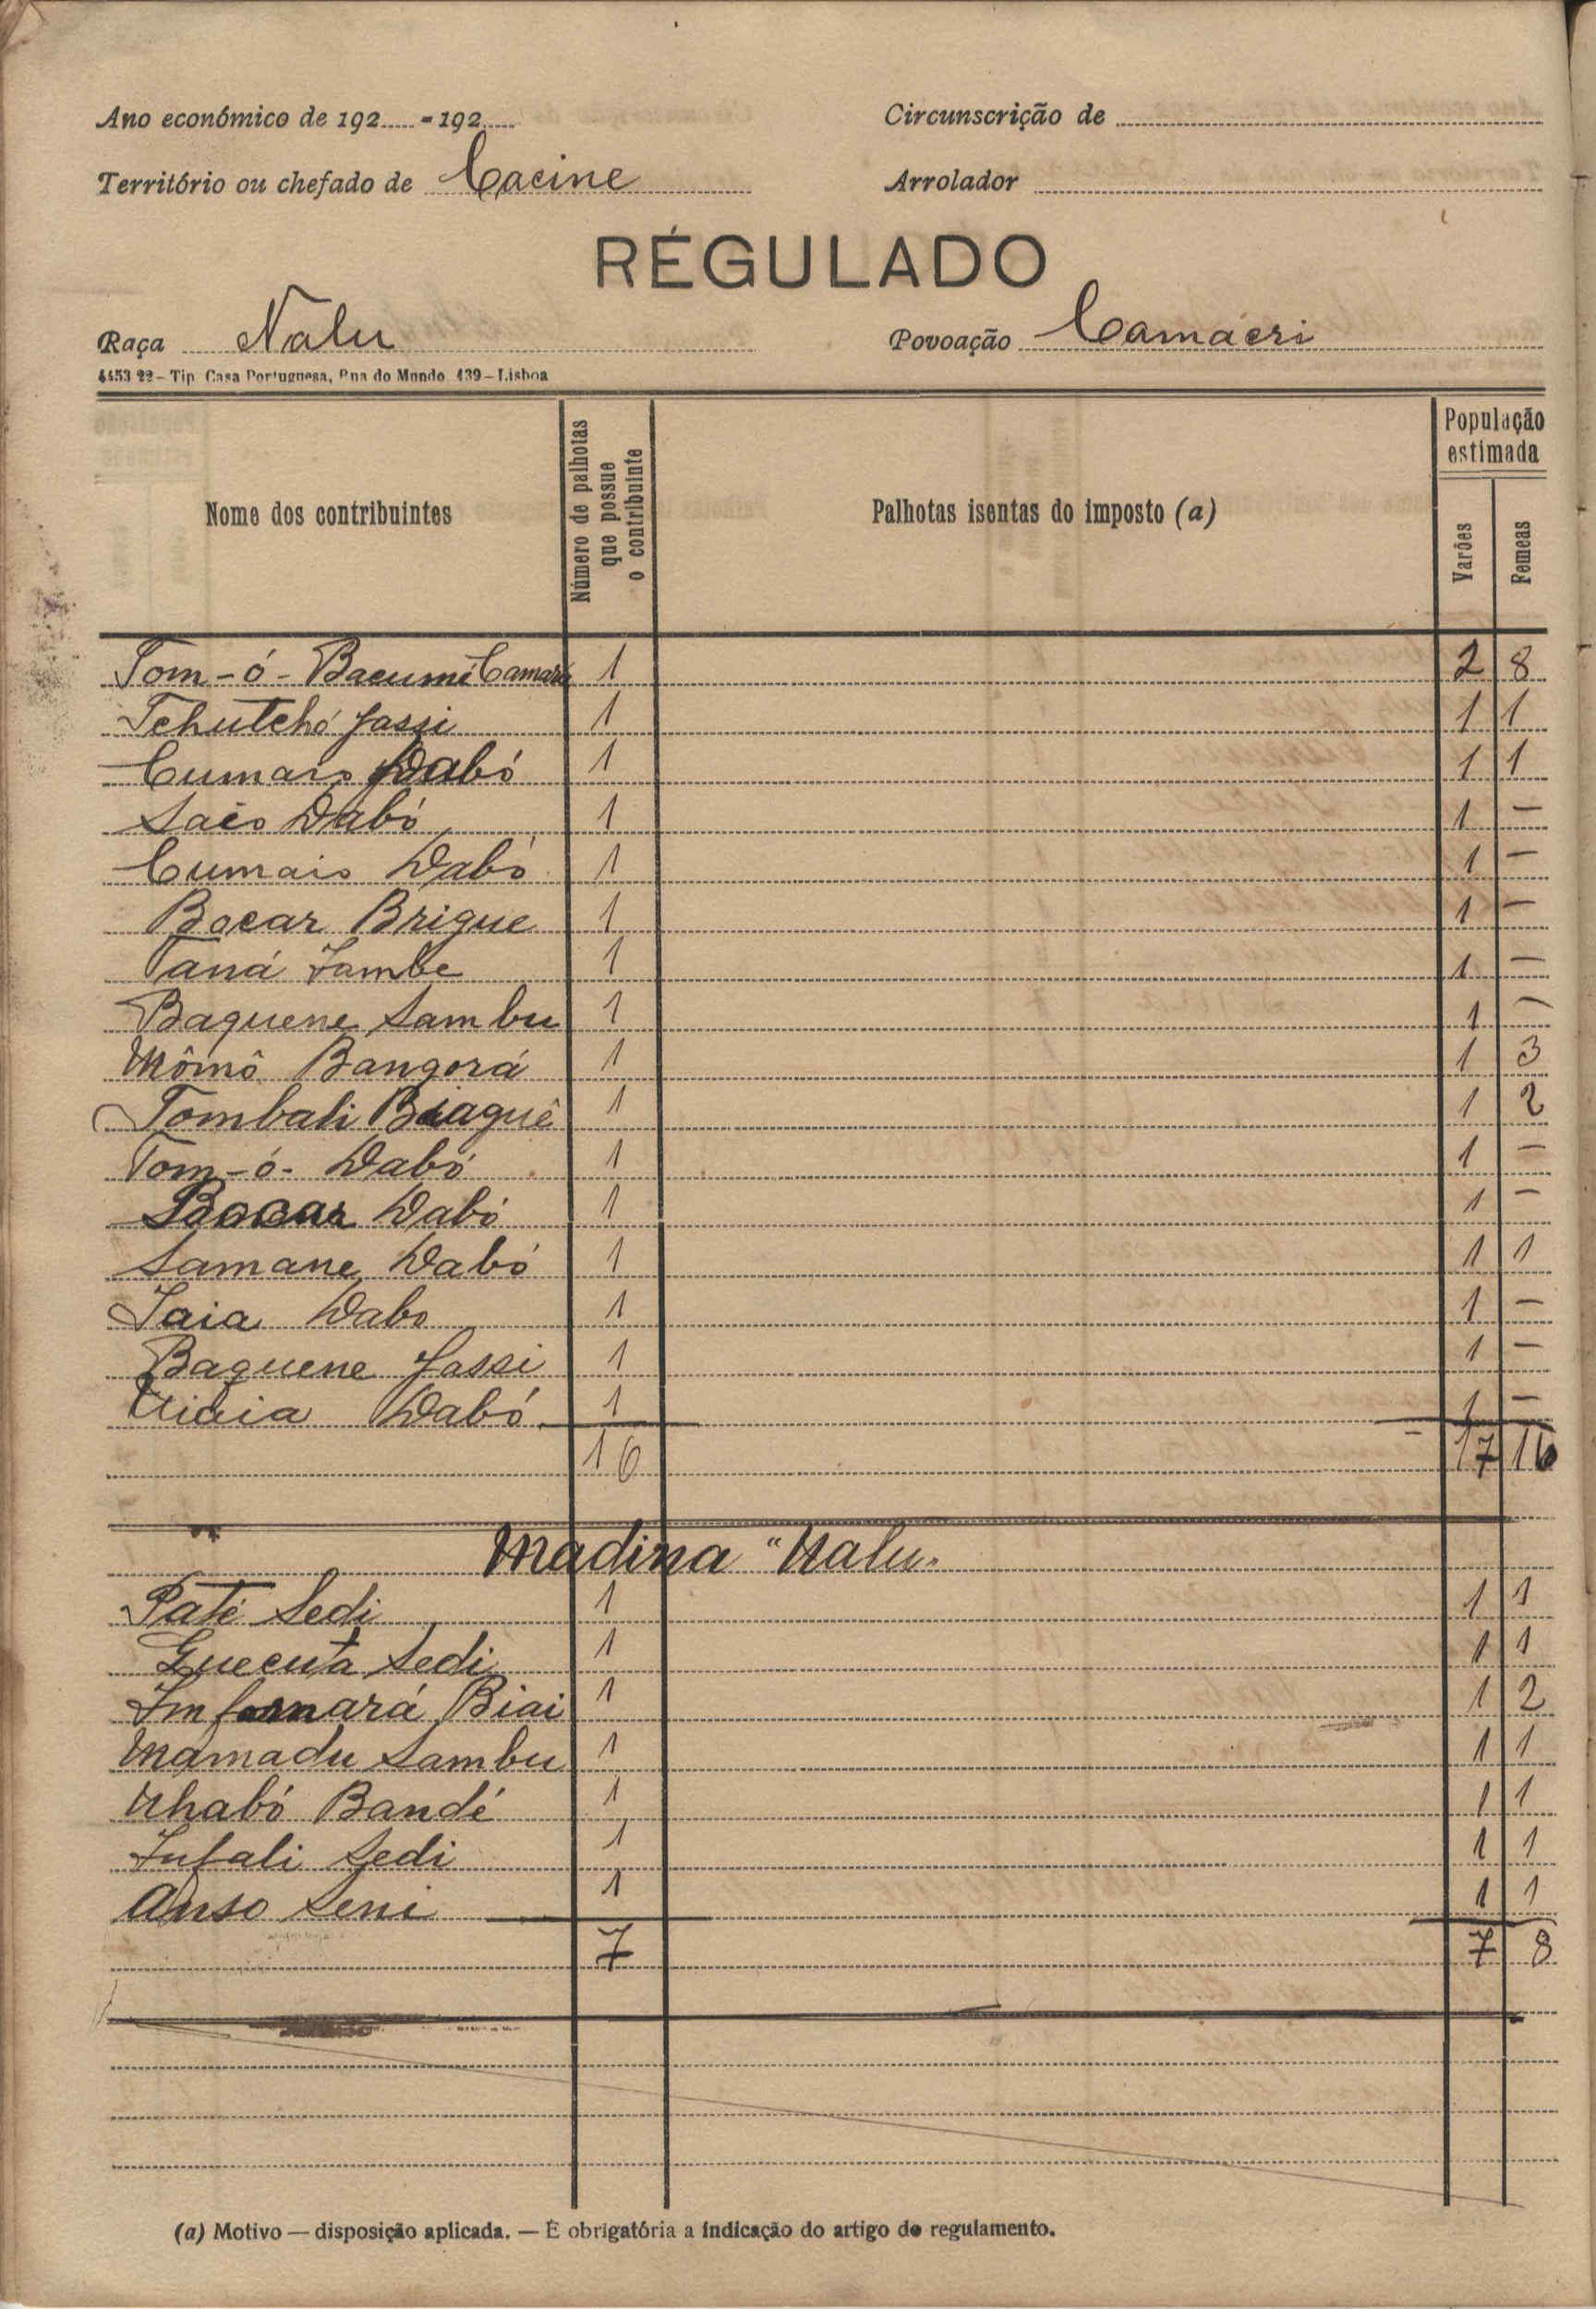 Ano económico de 192..... - 192.....
Circunscrição de
Território ou chefado de Cacine
Arrolador
RÉGULADO
Raça Nalu
Povoação Camácri
4453 22 – Tip. Casa Portuguesa, Rua do Mundo, 139 – Lisboa
Nome dos contribuintes
Número de palhotas que possue o contribuinte
Palhotas isentas do imposto (a)
População estimada
Varões
Femeas
Tom-ó-Bacumé Camará 1 2 8
Tchutchó Jassi 1 1 1
Cumais Dabó 1 1 1
Saio Dabó 1 1 —
Cumais Dabó 1 1 —
Bocar Brigue 1 1 —
Taná Jambe 1 1 —
Baquene Sambu 1 1 —
Mômô Bangorá 1 1 3
Tombali Biaguê 1 1 2
Tom-ó- Dabó 1 1 —
Bocar Dabó 1 1 —
Samane Dabó 1 1 1
Jaia Dabo 1 1 —
Baquene Jassi 1 1 —
Dabó 1 1 —
16 17 16
Madina "Nalu"
Paté Sedi 1 1 1
Quecuta Sedi 1 1 1
Biai 1 1 2
Mamadu Sambu 1 1 1
Nhabó Bandé 1 1 1
Infali Sedi 1 1 1
Anso Seni 1 1 1
7 7 8
(a) Motivo — disposição aplicada. — É obrigatória a indicação do artigo do regulamento.